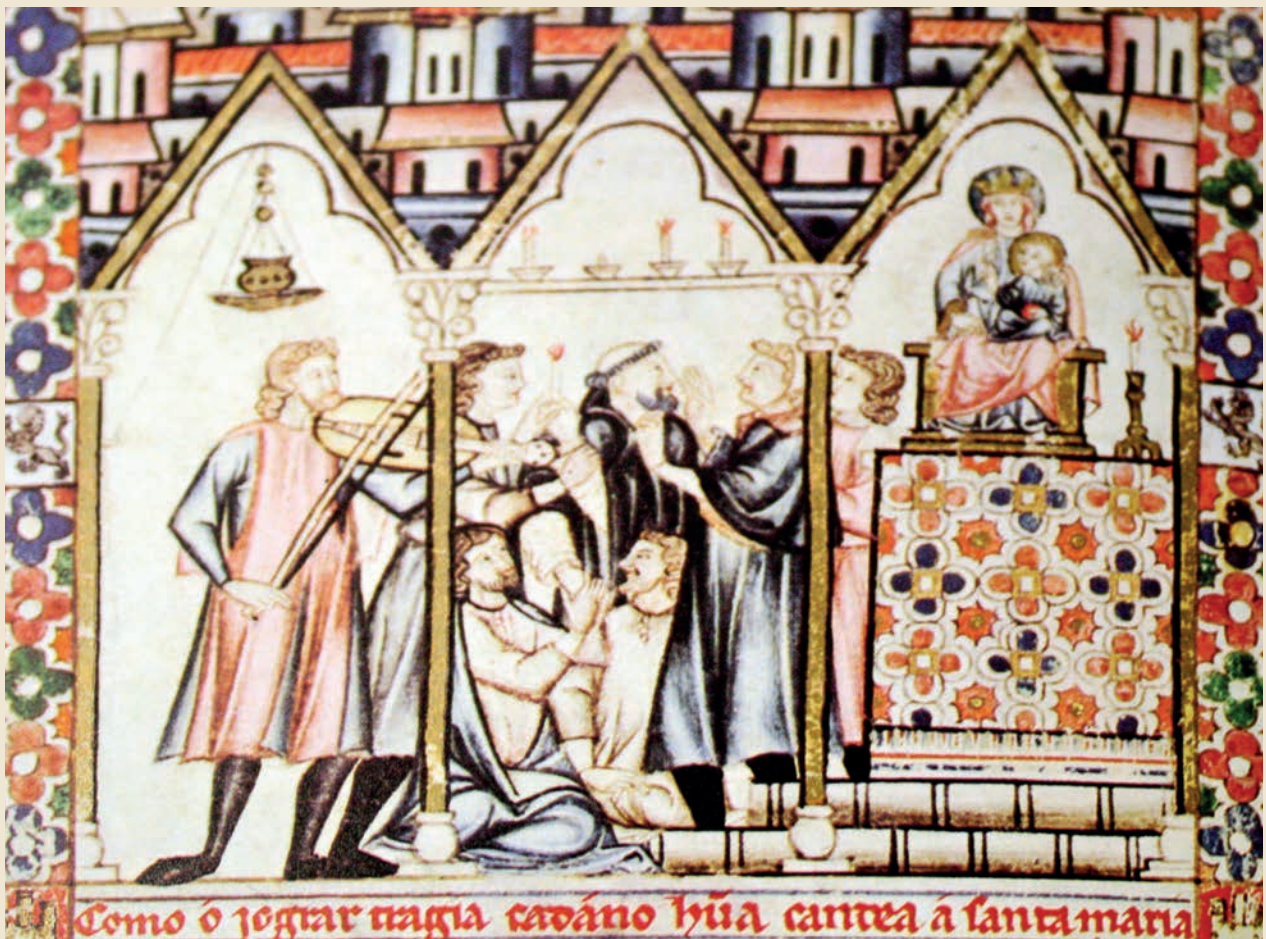 Como o jograr tragia cadáno hũa candea a santa maria